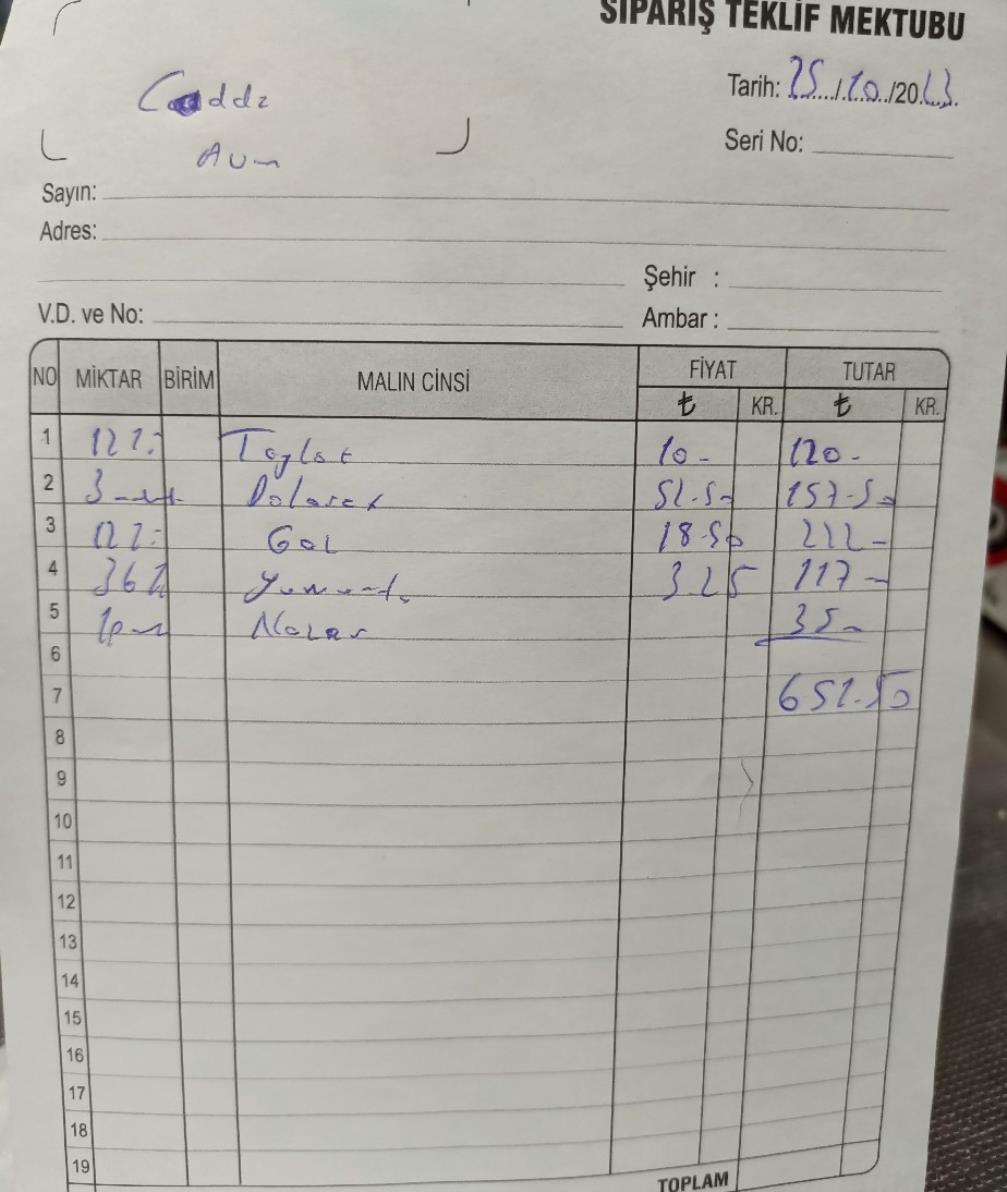 SİPARİŞ TEKLİF MEKTUBU
Cadde
Avm
Tarih: 25/10/2023
Seri No:
Sayın:
Adres:
Şehir :
V.D. ve No:
Ambar :
NO MİKTAR BİRİM MALIN CİNSİ FİYAT TUTAR
₺ KR. ₺ KR.
1 12 10- 120-
2 3 52.50 157-50
3 12 Gol 18-50 222-
4 36 3.25 117-
5 1 35-
6
7 651.50
8
9
10
11
12
13
14
15
16
17
18
19
TOPLAM